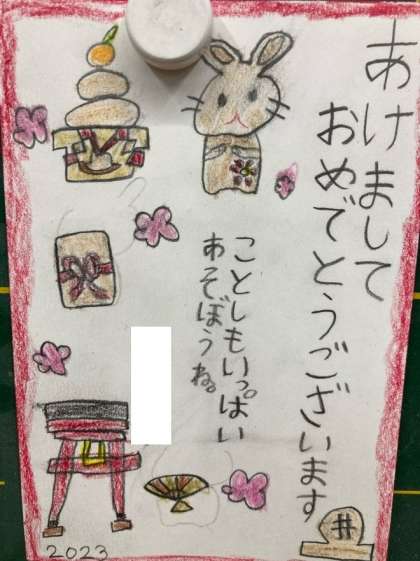 あけまして
おめでとうございます
ことしもいっぱい
あそぼうね。
2023